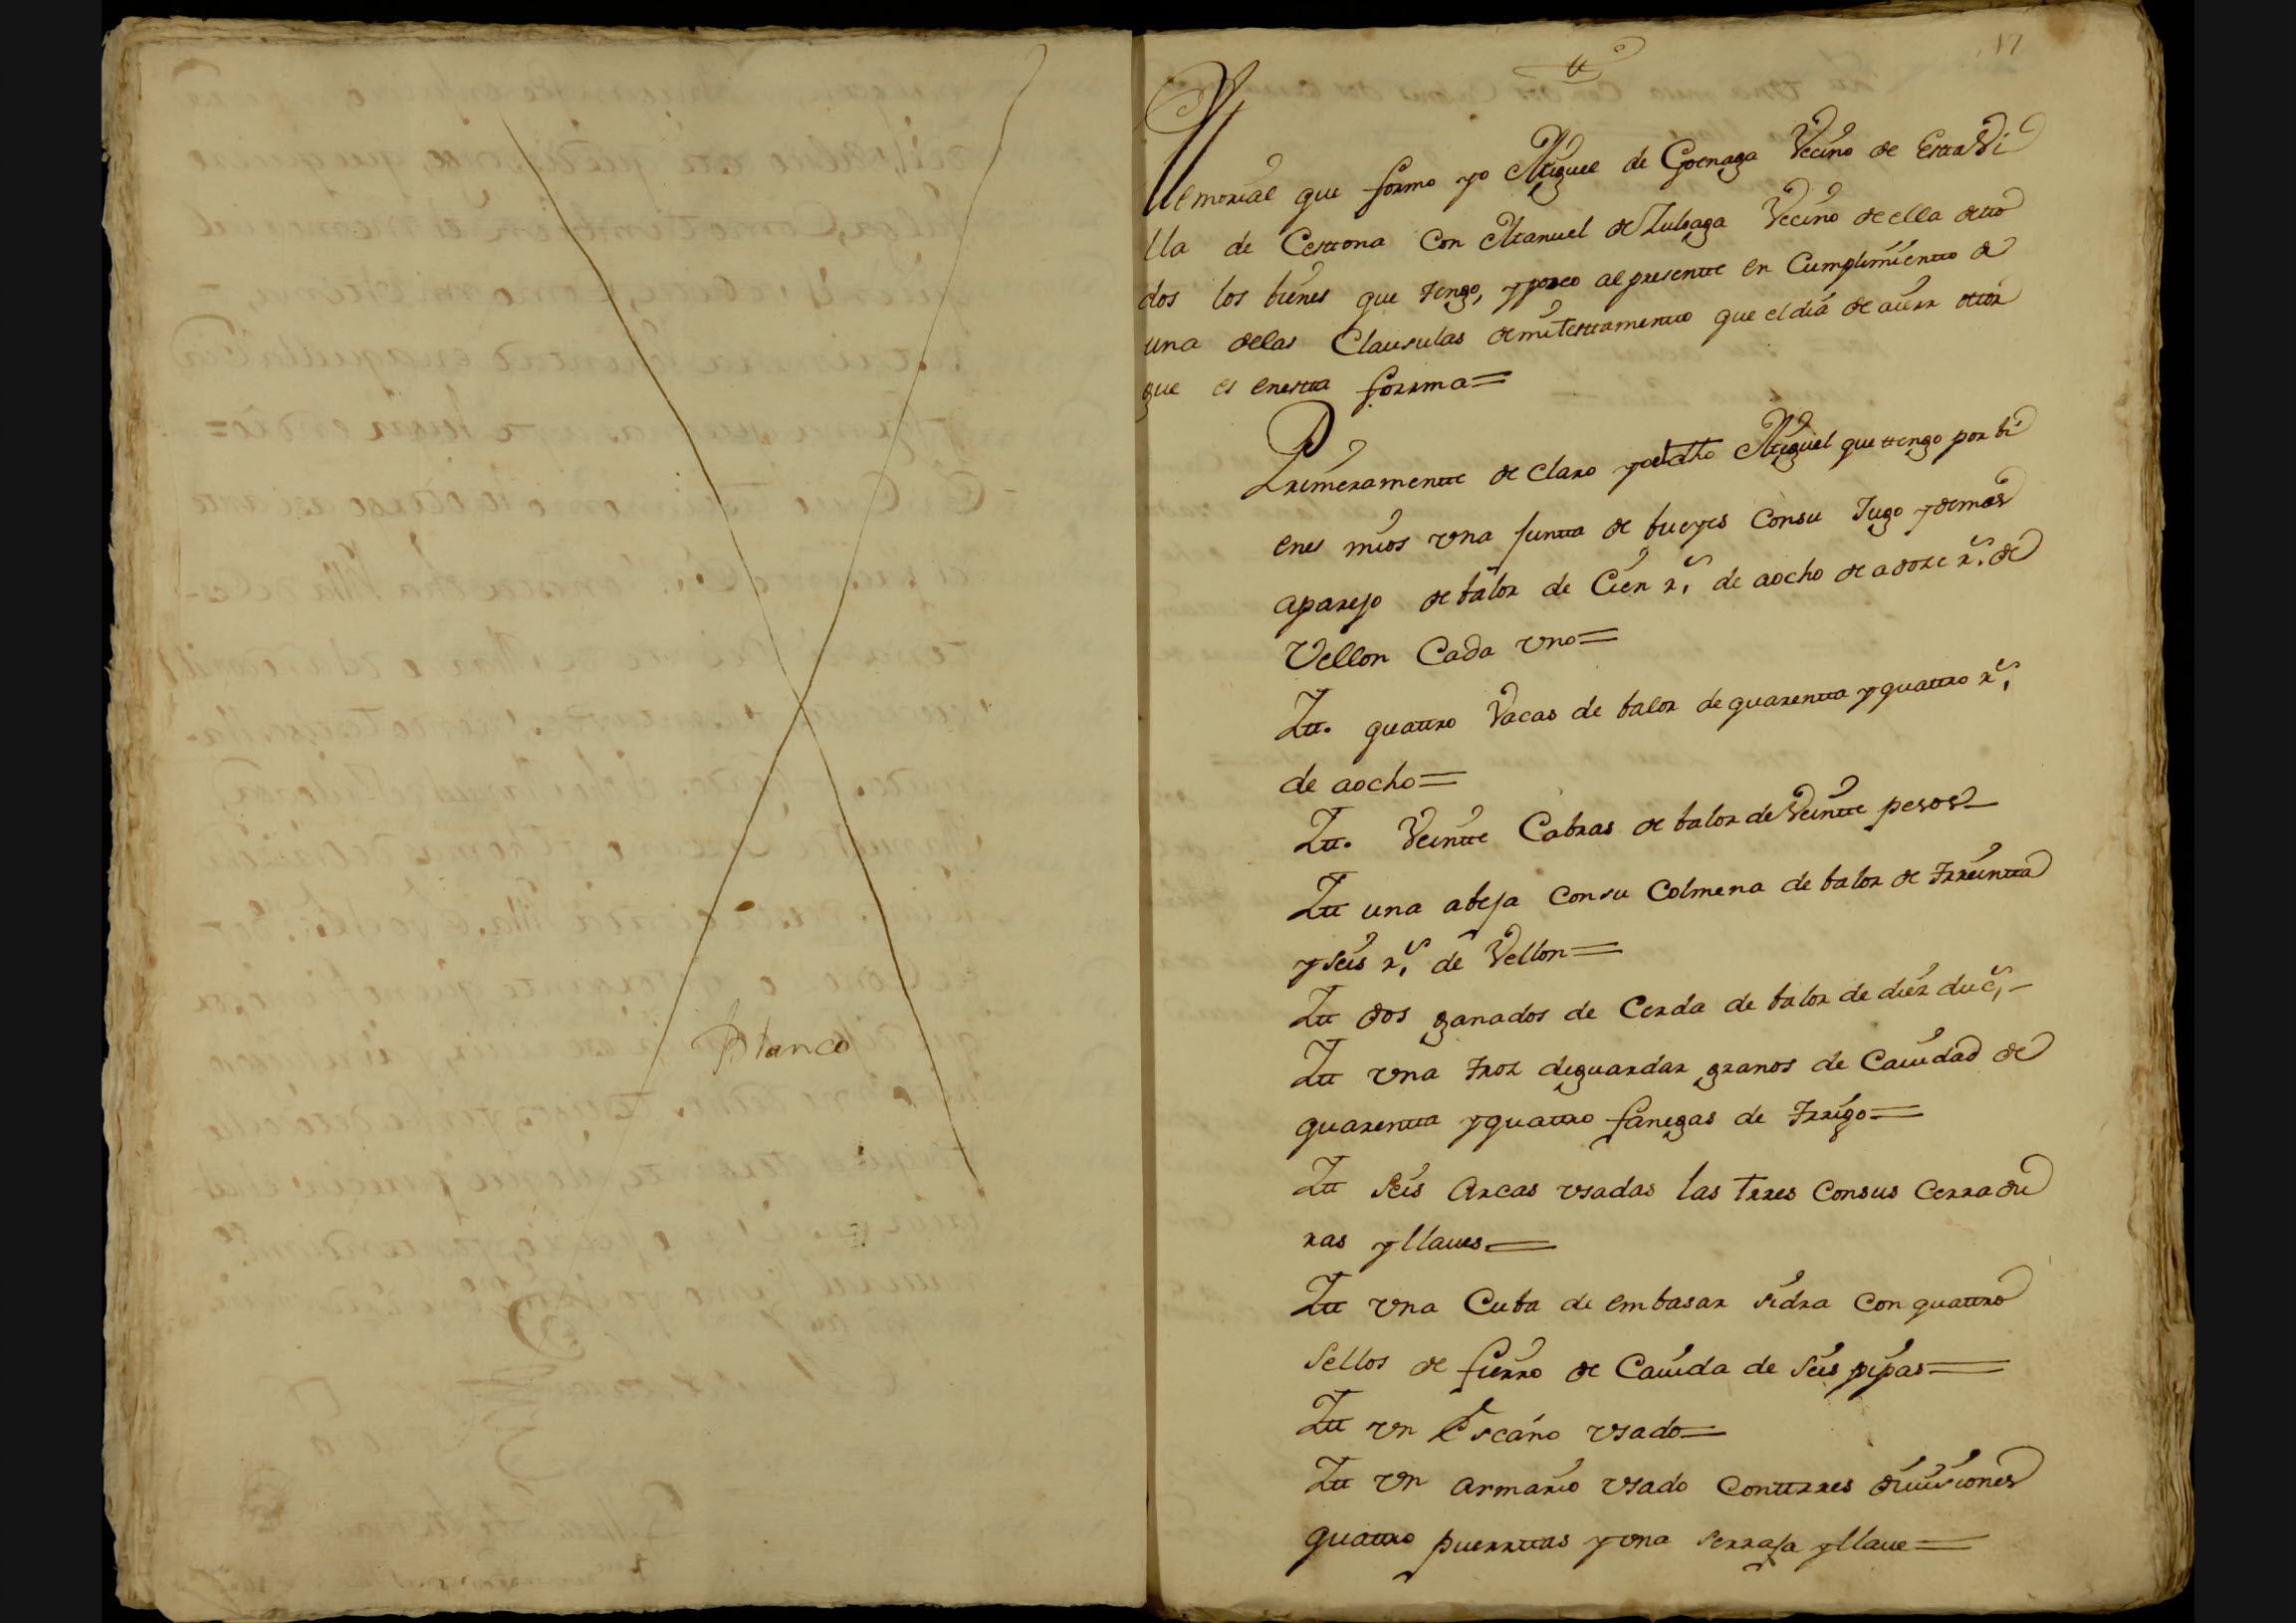 Blanco
17
Memorial que formo yo Miguel de Goenaga Vecino de Estta Vi
lla de Cesttona Con Manuel de Zuloaga Vecino de ella de tto
dos los bienes que tengo, y poseo al presentte en Cumplimientto de
una delas Clausulas de mi testtamentto que el dia de aier ottor
que es enestta forrma=
Primeramentte de claro yo el dho Miguel que ttengo por bi
enes mios vna Juntta de bueyes Consu Jugo y demas
aparejo de balor de Cien rs de aocho de adoze rs de
Vellon Cada vno=
Itt. quattro Vacas de balor de quarentta y quattro rs
de aocho=
Itt. Veintte Cabras de balor de Veintte pesos
Itt una abeja Consu Colmena de balor de trreintta
y seis rs de Vellon=
Itt dos ganados de Cerda de balor de diez ducs
Itt vna trox de guardar granos de Cauidad de
quarentta y quattro fanegas de trrigo=
Itt seis Arcas vsadas las trres Consus Cerradu
ras y llaues=
Itt vna Cuba de embasar sidra Con quattro
sellos de fierro de Cauida de seis pipas=
Itt vn Escaño vsado=
Itt vn armario vsado Conttrres diuisiones
quattro puerttas y vna serraja y llaue=